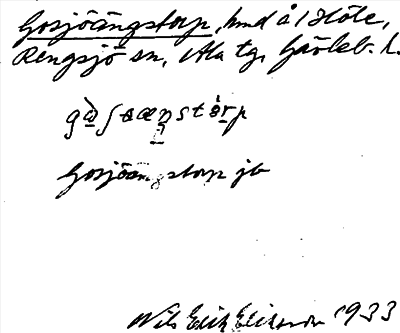 Gosjöängstorp, hmd å 1 Höle,
Rengsjö sn, Ala tg, Gävleb. l.
Gosjöängstorp jb
Nils Erik Eliksson 1933